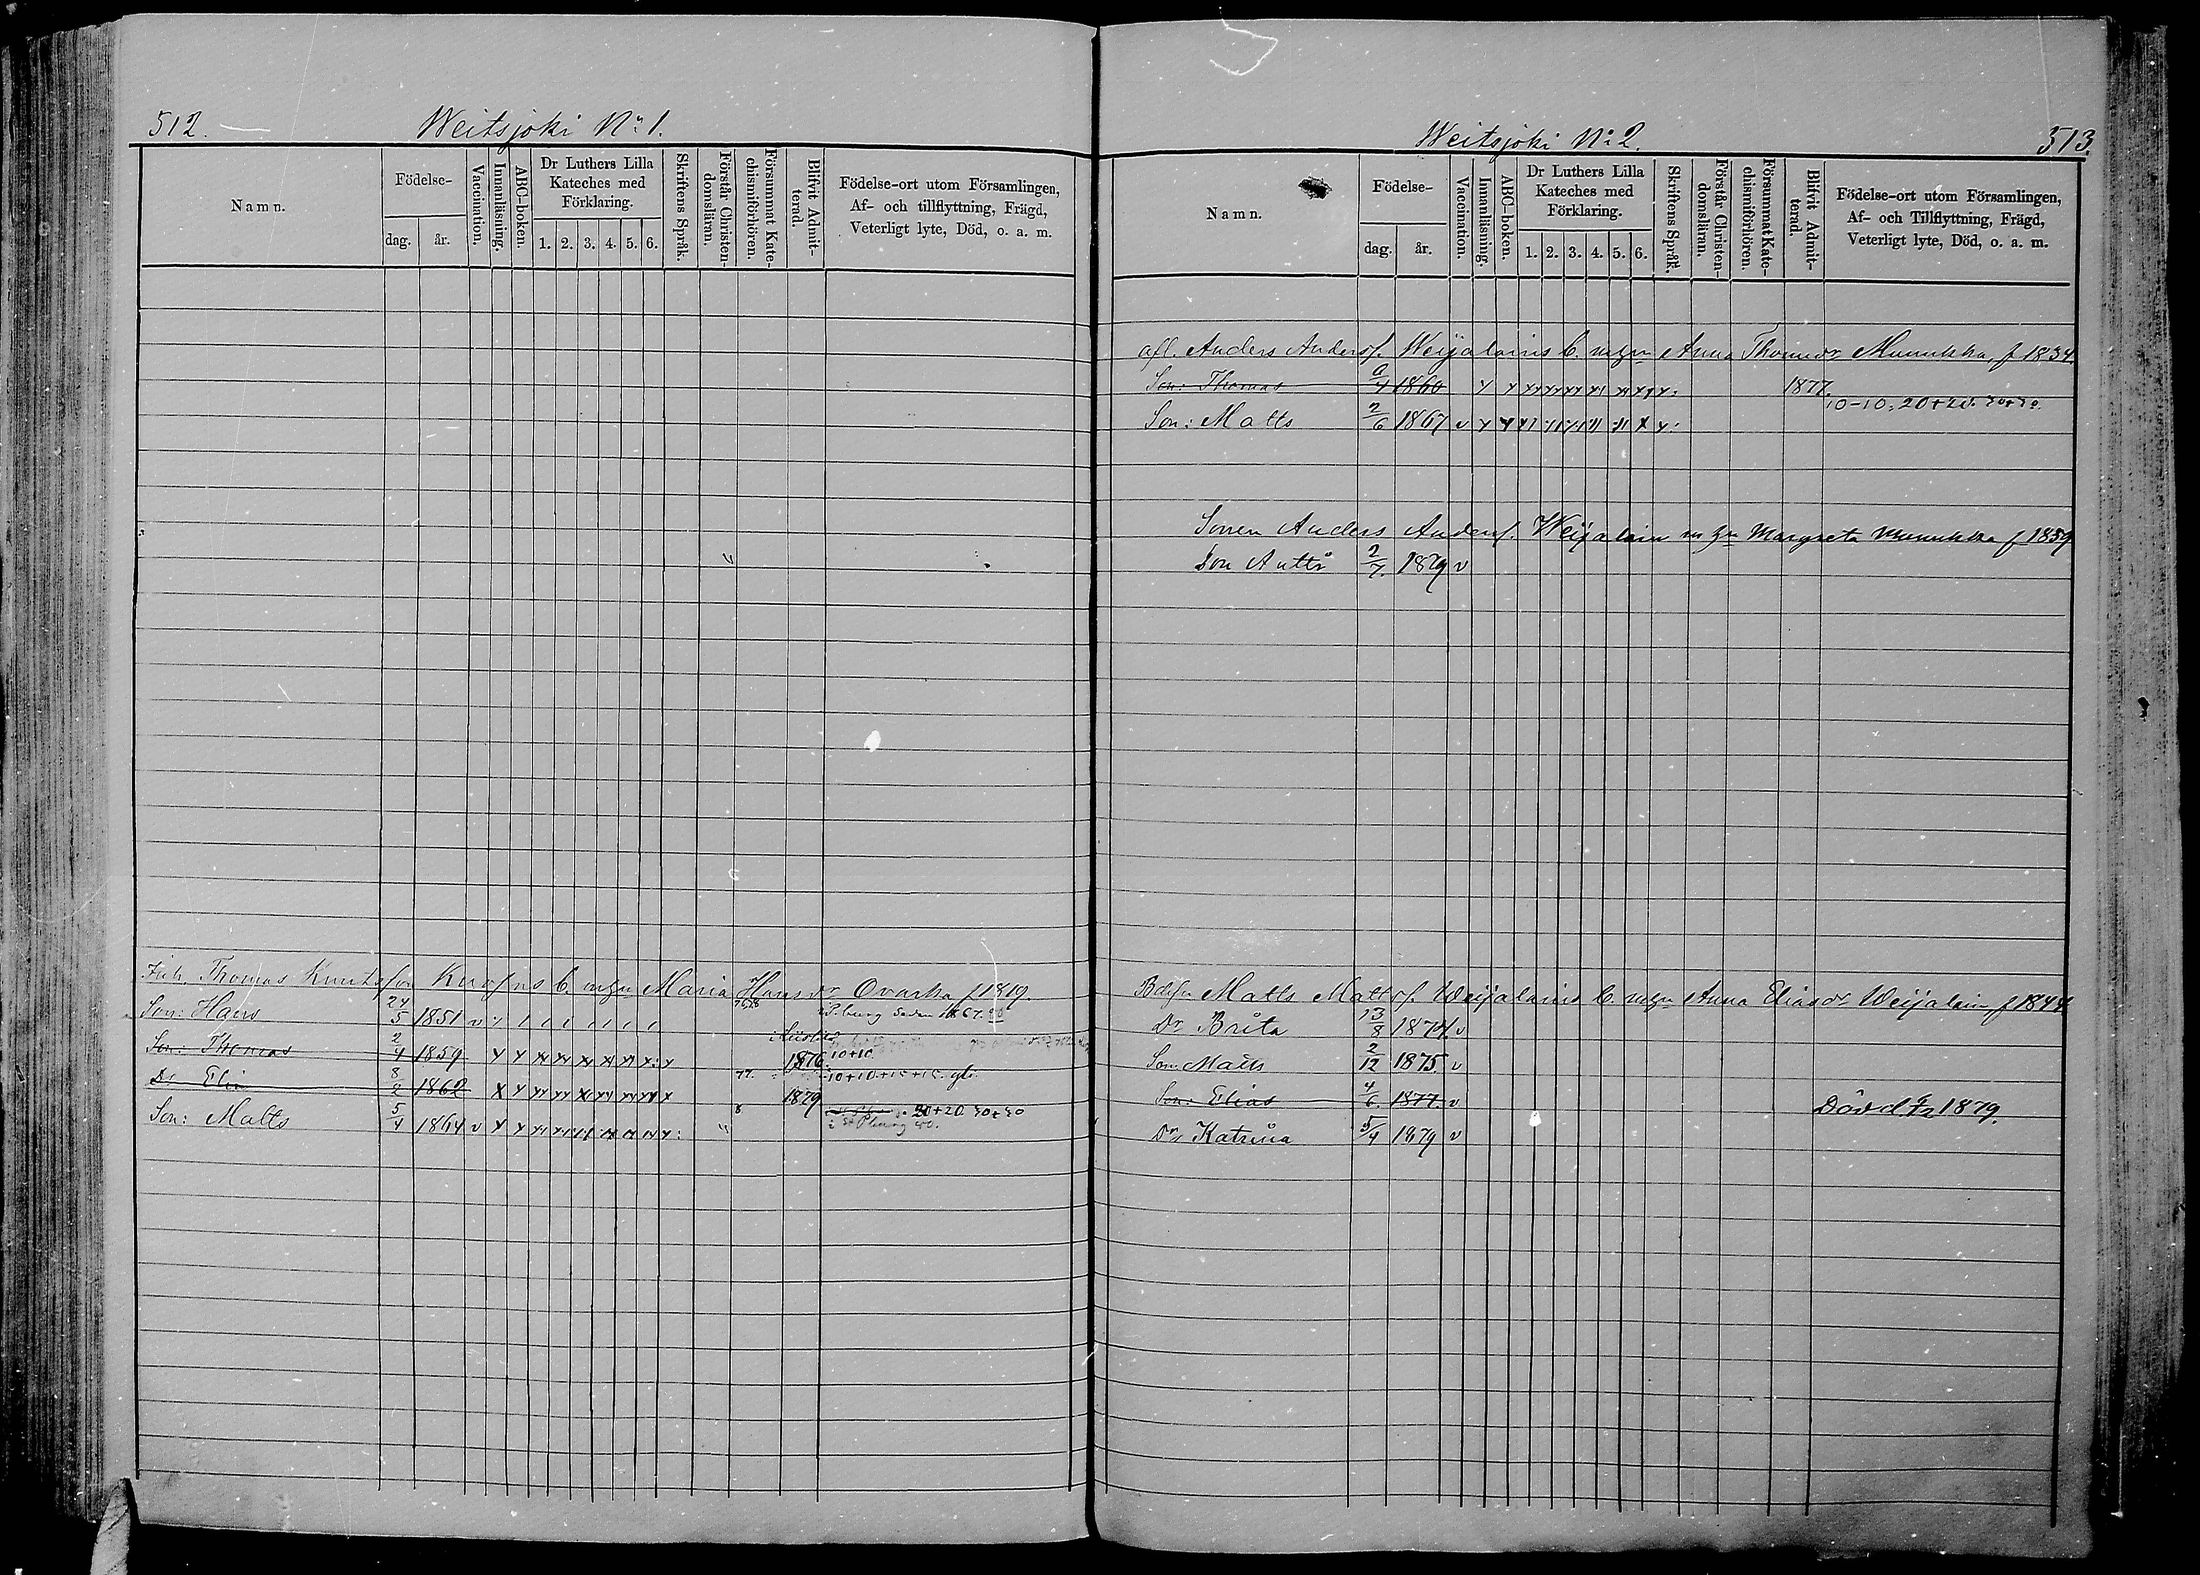 512.
Weitsjoki No 1.
Namn.
Födelse-
dag.
år.
Vaccination.
Innanläsning.
ABC-boken.
Dr Luthers Lilla Kateches med Förklaring.
1. 2. 3. 4. 5. 6.
Skriftens Språk.
Förstår Christendomsläran.
Försummat Katechismiförhören.
Blifvit Admitterad.
Födelse-ort utom Församlingen,
Af- och tillflyttning, Frägd,
Veterligt lyte, Död, o. a. m.
Thomas Knuts son b. mgn Maria Hans dr Ovaska f 1819.
Son: Hans 24/5 1851 v
Son: Thomas 2/4 1859 1876. 10+10
Dr Elin 8/2 1862 77. 1879 10+10+15+15.
Son: Matts 5/4 1864 v 8 20+20 40+40
Weitsjoki No 2.
513.
Namn.
Födelse-
dag.
år.
Vaccination.
Innanläsning.
ABC-boken.
Dr Luthers Lilla Kateches med Förklaring.
1. 2. 3. 4. 5. 6.
Skriftens Språk.
Förstår Christendomsläran.
Försummat Katechismiförhören.
Blifvit Admitterad.
Födelse-ort utom Församlingen,
Af- och Tillflyttning, Frägd,
Veterligt lyte, Död, o. a. m.
afl. Anders Anders s. Weijalains b. mgn Anna Thomsdr Munukka, f 1834.
Son: Thomas 1860 1877.
Son: Matts 2/6 1867 v 10-10. 20+20.
Sonen Anders Anders s. Weijalain m hn Margreta Munukka f 1859
Son Antti 2/7. 1879 v
Matts Matts s. Weijalains b. mgn Anna Eliasdr Weijalain, f 1844
Dr Brita 13/8 1874. v
Son: Matts 2/12 1875. v
Son: Elias 4/6. 1877. v Död 1879.
Dr, Katrina 5/4 1879 v